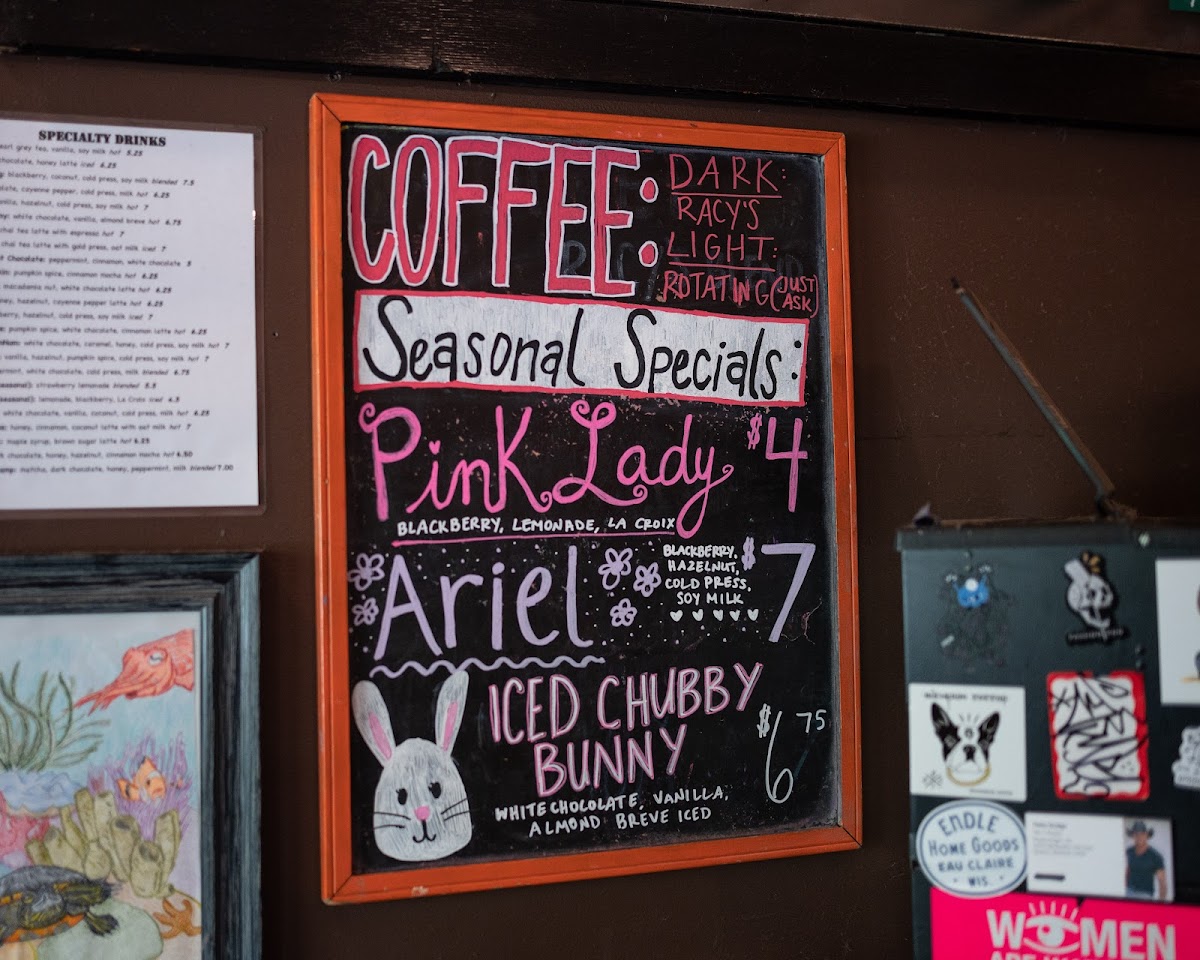 SPECIALTY DRINKS
earl grey tea, vanilla, soy milk hot 5.25
chocolate, honey latte iced 6.25
blackberry, coconut, cold press, soy milk blended 7.5
cayenne pepper, cold press, milk hot 6.25
hazelnut, cold press, soy milk hot 7
white chocolate, vanilla, almond breve hot 6.75
chai tea latte with espresso hot 7
chai tea latte with gold press, oat milk iced 7
Chocolate: peppermint, cinnamon, white chocolate 5
pumpkin spice, cinnamon mocha hot 6.25
macadamia nut, white chocolate latte hot 6.25
hazelnut, cayenne pepper latte hot 6.25
hazelnut, cold press, soy milk iced 7
pumpkin spice, white chocolate, cinnamon latte hot 6.25
white chocolate, caramel, honey, cold press, soy milk hot 7
vanilla, hazelnut, pumpkin spice, cold press, soy milk hot 7
white chocolate, cold press, milk blended 6.75
strawberry lemonade blended 5.5
lemonade, blackberry, La Croix iced 4.5
white chocolate, vanilla, coconut, cold press, milk hot 6.25
honey, cinnamon, coconut latte with oat milk hot 7
maple syrup, brown sugar latte hot 6.25
chocolate, honey, hazelnut, cinnamon mocha hot 6.50
matcha, dark chocolate, honey, peppermint, milk blended 7.00
COFFEE:
DARK:
RACY'S
LIGHT:
ROTATING (JUST ASK)
Seasonal Specials:
Pink Lady $4
BLACKBERRY, LEMONADE, LA CROIX
Ariel
BLACKBERRY,
HAZELNUT,
COLD PRESS,
SOY MILK
$7
ICED CHUBBY
BUNNY
$6 75
WHITE CHOCOLATE, VANILLA,
ALMOND BREVE ICED
ENDLE
HOME GOODS
EAU CLAIRE
WIS.
WOMEN